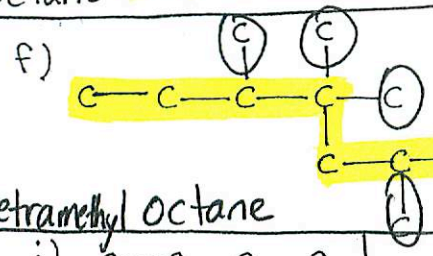 f)
C C
C — C — C — C — C
C — C —
C
etramethyl octane